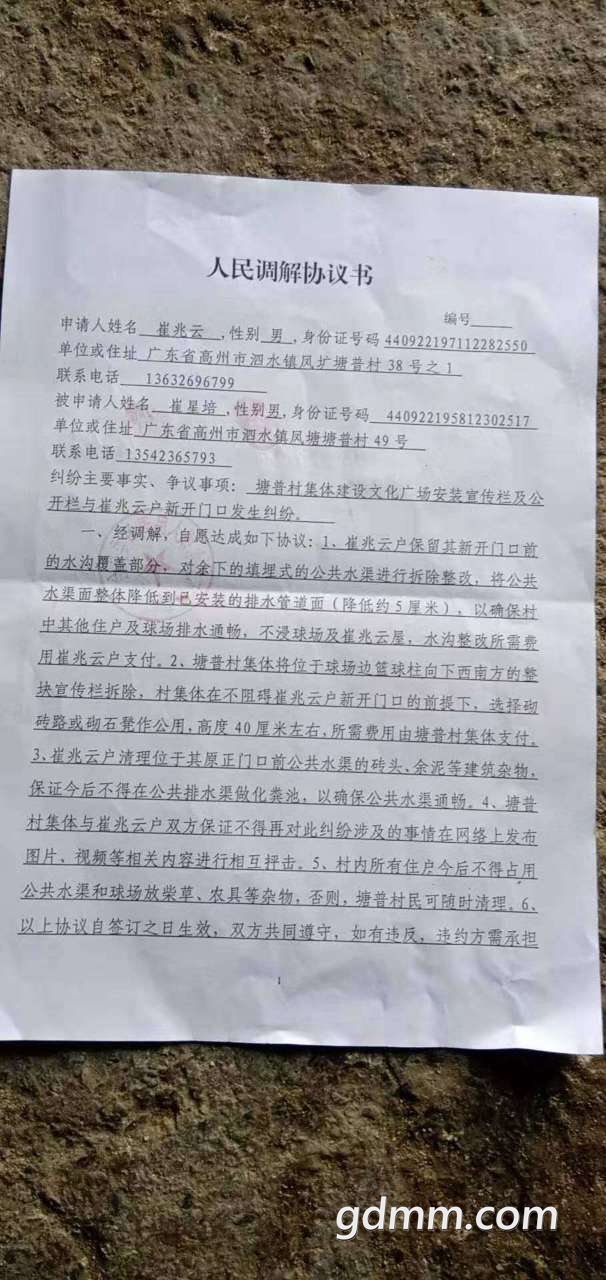 人民调解协议书
编号
申请人姓名 崔兆云 ,性别 男 ,身份证号码 440922197112282550
单位或住址 广东省高州市泗水镇凤圹塘普村 38 号之 1
联系电话 13632696799
被申请人姓名 崔星培 ,性别男,身份证号码 440922195812302517
单位或住址 广东省高州市泗水镇凤塘塘普村 49 号
联系电话 13542365793
纠纷主要事实、争议事项: 塘普村集体建设文化广场安装宣传栏及公
开栏与崔兆云户新开门口发生纠纷。
一、经调解，自愿达成如下协议:1、崔兆云户保留其新开门口前
的水沟覆盖部分，对余下的填埋式的公共水渠进行拆除整改，将公共
水渠面整体降低到已安装的排水管道面（降低约 5 厘米），以确保村
中其他住户及球场排水通畅，不浸球场及崔兆云屋，水沟整改所需费
用崔兆云户支付。2、塘普村集体将位于球场边篮球柱向下西南方的整
块宣传栏拆除，村集体在不阻碍崔兆云户新开门口的前提下，选择砌
砖路或砌石凳作公用,高度 40 厘米左右,所需费用由塘普村集体支付。
3、崔兆云户清理位于其原正门口前公共水渠的砖头、余泥等建筑杂物，
保证今后不得在公共排水渠做化粪池，以确保公共水渠通畅。4、塘普
村集体与崔兆云户双方保证不得再对此纠纷涉及的事情在网络上发布
图片、视频等相关内容进行相互抨击。5、村内所有住户今后不得占用
公共水渠和球场放柴草、农具等杂物，否则，塘普村民可随时清理。6、
以上协议自签订之日生效，双方共同遵守，如有违反，违约方需承担
1
gdmm.com